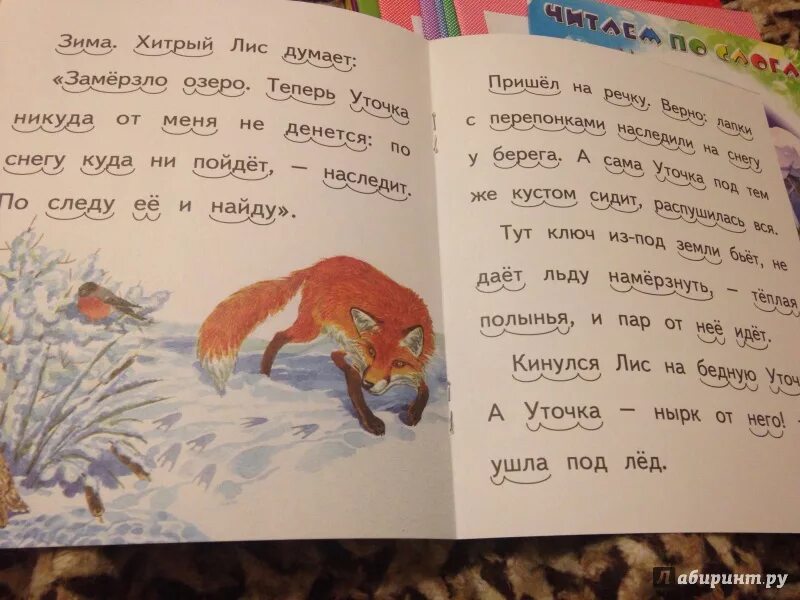 Зима. Хитрый Лис думает:
«Замёрзло озеро. Теперь Уточка
никуда от меня не денется: по
снегу куда ни пойдёт, — наследит.
По следу её и найду».
ЧИТАЕМ ПО
Пришёл на речку. Верно: лапки
с перепонками наследили на снегу
у берега. А сама Уточка под тем
же кустом сидит, распушилась вся.
Тут ключ из-под земли бьёт, не
даёт льду намёрзнуть, — тёплая
полынья, и пар от неё идёт.
Кинулся Лис на бедную Уточ
А Уточка — нырк от него! -
ушла под лёд.
Лабиринт.ру